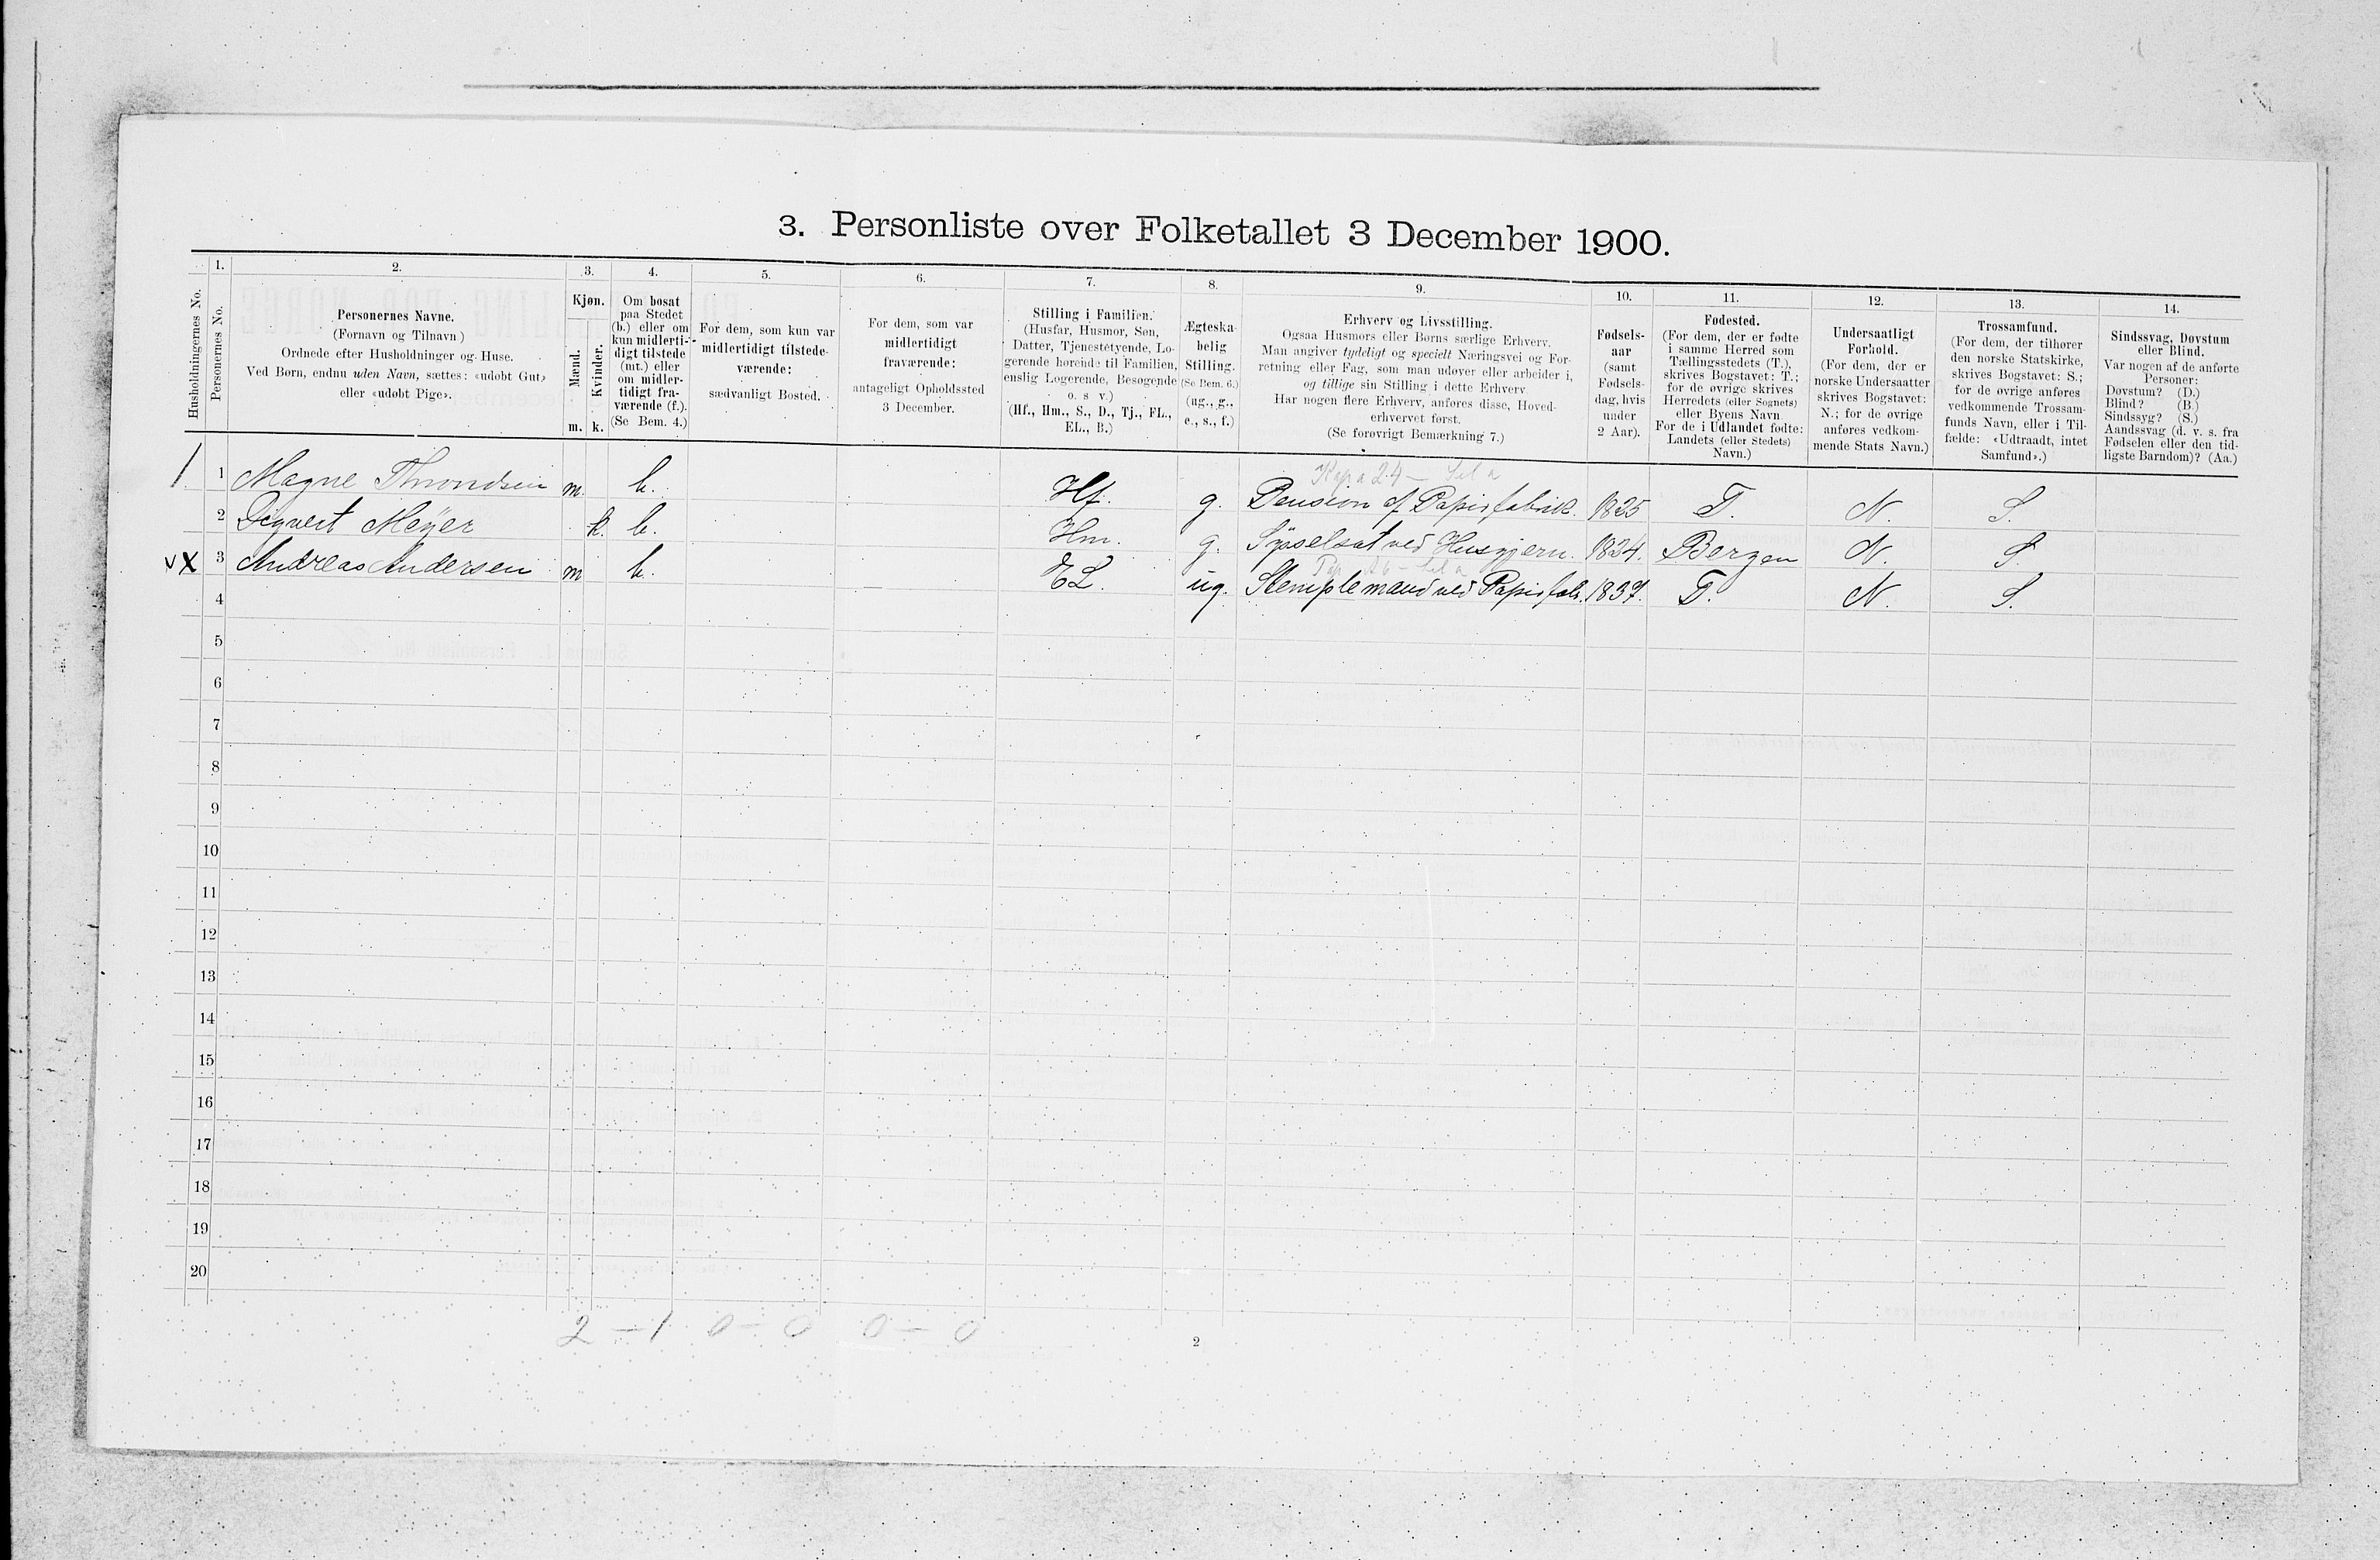 3. Personliste over Folketallet 3 December 1900.
1. 2. 3. 4. 5. 6. 7. 8. 9. 10. 11. 12. 13. 14.
Husholdningernes No.
Personernes No.
Personernes Navne.
(Fornavn og Tilnavn)
Ordnede efter Husholdninger og Huse.
Ved Børn, endnu uden Navn, sættes: «udøbt Gut»
eller «udøbt Pige».
Kjøn.
Mænd.
Kvinder.
m. k.
Om bosat
paa Stedet
(b.) eller om
kun midlerti-
digt tilstede
(mt.) eller
om midler-
tidigt fra-
værende (f.).
(Se Bem. 4.)
For dem, som kun var
midlertidigt tilstede-
værende:
sædvanligt Bosted.
For dem, som var
midlertidigt
fraværende:
antageligt Opholdssted
3 December.
Stilling i Familien.
(Husfar, Husmor, Søn,
Datter, Tjenestetyende, Lo-
gerende hørende til Familien,
enslig Logerende, Besøgende
o. s. v.)
(Hf., Hm., S., D., Tj., FL.,
EL., B.)
Ægteska-
belig
Stilling.
(Se Bem. 6.)
(ug., g.,
e., s., f.)
Erhverv og Livsstilling.
Ogsaa Husmors eller Børns særlige Erhverv.
Man angiver tydeligt og specielt Næringsvei og For-
retning eller Fag, som man udøver eller arbeider i,
og tillige sin Stilling i dette Erhverv.
Har nogen flere Erhverv, anføres disse, Hoved-
erhvervet først.
(Se forøvrigt Bemærkning 7.)
Fødsels-
aar
(samt
Fødsels-
dag, hvis
under
2 Aar).
Fødested.
(For dem, der er fødte
i samme Herred som
Tællingsstedets (T.),
skrives Bogstavet: T.;
for de øvrige skrives
Herredets (eller Sognets)
eller Byens Navn.
For de i Udlandet fødte:
Landets (eller Stedets)
Navn.)
Undersaatligt
Forhold.
(For dem, der er
norske Undersaatter
skrives Bogstavet:
N.; for de øvrige
anføres vedkom-
mende Stats Navn.)
Trossamfund.
(For dem, der tilhører
den norske Statskirke,
skrives Bogstavet: S.;
for de øvrige anføres
vedkommende Trossam-
funds Navn, eller i Til-
fælde: «Udtraadt, intet
Samfund».)
Sindssvag, Døvstum
eller Blind.
Var nogen af de anførte
Personer:
Døvstum? (D.)
Blind? (B.)
Sindssyg? (S.)
Aandssvag (d. v. s. fra
Fødselen eller den tid-
ligste Barndom)? (Aa.)
1 1 Magne Throndsen m. b. Hf. g. Pension af Papirfabrik. 1825 T. N. S.
2 Sigvert Meyer k. b. Hm. g. Sysselsat ved Husgjern. 1824. Bergen N. S.
vx 3 Andreas Andersen m b. EL. ug. Stemplemand ved Papirfab. 1837. T. N. S.
4
5
6
7
8
9
10
11
12
13
14
15
16
17
18
19
20
2 – 1 0 – 0 0 – 0
2